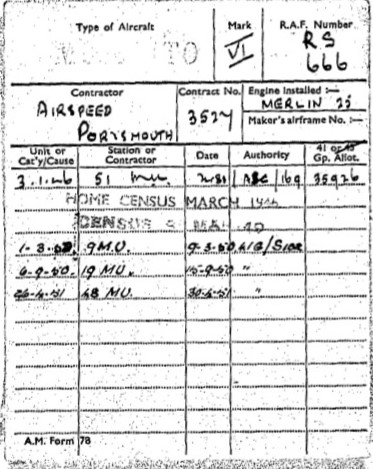 Type of Aircraft
Mark
R.A.F. Number
TO
VI
RS
666
Contractor
Contract No.
Engine Installed :—
AIRSPEED
PORTSMOUTH
3527
MERLIN 25
Maker's airframe No. :—
Unit or Cat'y/Cause
Station or Contractor
Date
Authority
41 or 43 Gp. Allot.
51 M.U. 41G/ 35926
HOME CENSUS MARCH
CENSUS
9 M.U. 9-3-50 41G/
6-9-50. 19 MU. 15-9-50 "
26-4-51 48 MU. 30-4-51 "
A.M. Form 78